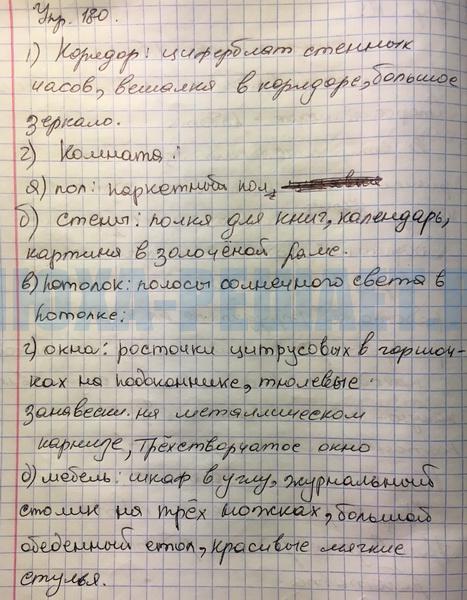 Упр. 180.
1) Коридор: циферблат стенных
часов, вешалка в коридоре, большое
зеркало.
2) Комната:
а) пол: паркетный пол,
б) стены: полка для книг, календарь,
картина в золочёной раме.
в) потолок: полосы солнечного света в
потолке:
г) окна: росточки цитрусовых в горшоч-
ках на подоконнике, тюлевые
занавески на металлическом
карнизе, трёхстворчатое окно
д) мебель: шкаф в углу, журнальный
столик на трёх ножках, большой
обеденный стол, красивые мягкие
стулья.